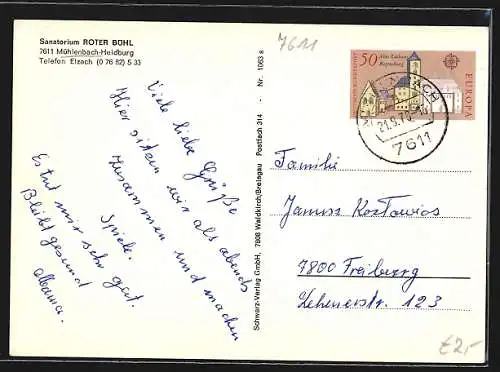 Sanatorium ROTER BÜHL
7611 Mühlenbach-Heidburg
Telefon Elzach (0 76 82) 5 33
7611
50
Altes Rathaus
Regensburg
EUROPA
21.9.78
7611
Viele liebe Grüße
Hier sitzen wir als abends
zusammen und machen
Spiele.
Es tut mir sehr gut.
Bleibt gesund
Schwarz-Verlag GmbH, 7808 Waldkirch/Breisgau Postfach 314 - Nr. 1063 s
Familie
Janusz Kostowios
7800 Freiburg
Lehenerstr. 123
£2,-